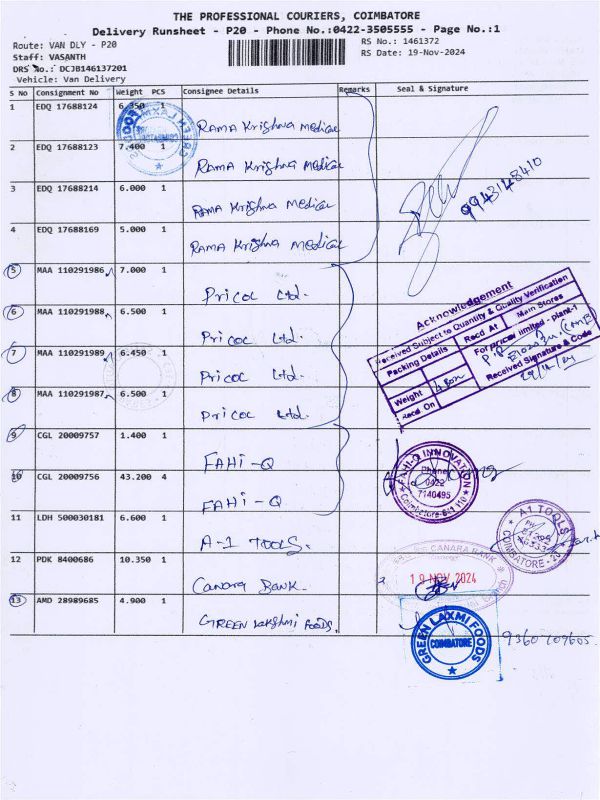 THE PROFESSIONAL COURIERS, COIMBATORE
Delivery Runsheet - P20 - Phone No.:0422-3505555 - Page No.:1
Route: VAN DLY - P20
RS No.: 1461372
Staff: VASANTH
RS Date: 19-Nov-2024
DRS No.: DCJB146137201
Vehicle: Van Delivery
S No Consignment No Weight PCS Consignee Details Remarks Seal & Signature
1 EDQ 17688124 6.350 1 Rama Krishna Medical
2 EDQ 17688123 7.400 1 Rama Krishna Medical
3 EDQ 17688214 6.000 1 Rama Krishna Medical
4 EDQ 17688169 5.000 1 Rama Krishna Medical
9943148410
5 MAA 110291986 7.000 1 Pricol Ltd.
6 MAA 110291988 6.500 1 Pricol Ltd.
7 MAA 110291989 6.450 1 Pricol Ltd.
8 MAA 110291987 6.500 1 Pricol Ltd.
Acknowledgement
Received Subject to Quantity & Quality Verification
Packing Details Recd At Main Stores
For pricol limited - plant-1
Weight 4 Box
Recd On
Received Signature & Code
9 CGL 20009757 1.400 1 FAHI-Q
10 CGL 20009756 43.200 4 FAHI-Q
FAHI-Q INNOVATION
Phone:
0422
7140495
11 LDH 500030181 6.600 1 A-1 TOOLS.
A1 TOOLS
12 PDK 8400686 10.350 1 Canara Bank.
CANARA BANK
19 NOV 2024
13 AMD 28989685 4.900 1 GREEN lakshmi FOODS.
GREEN LAXMI FOODS
COIMBATORE
9360709605